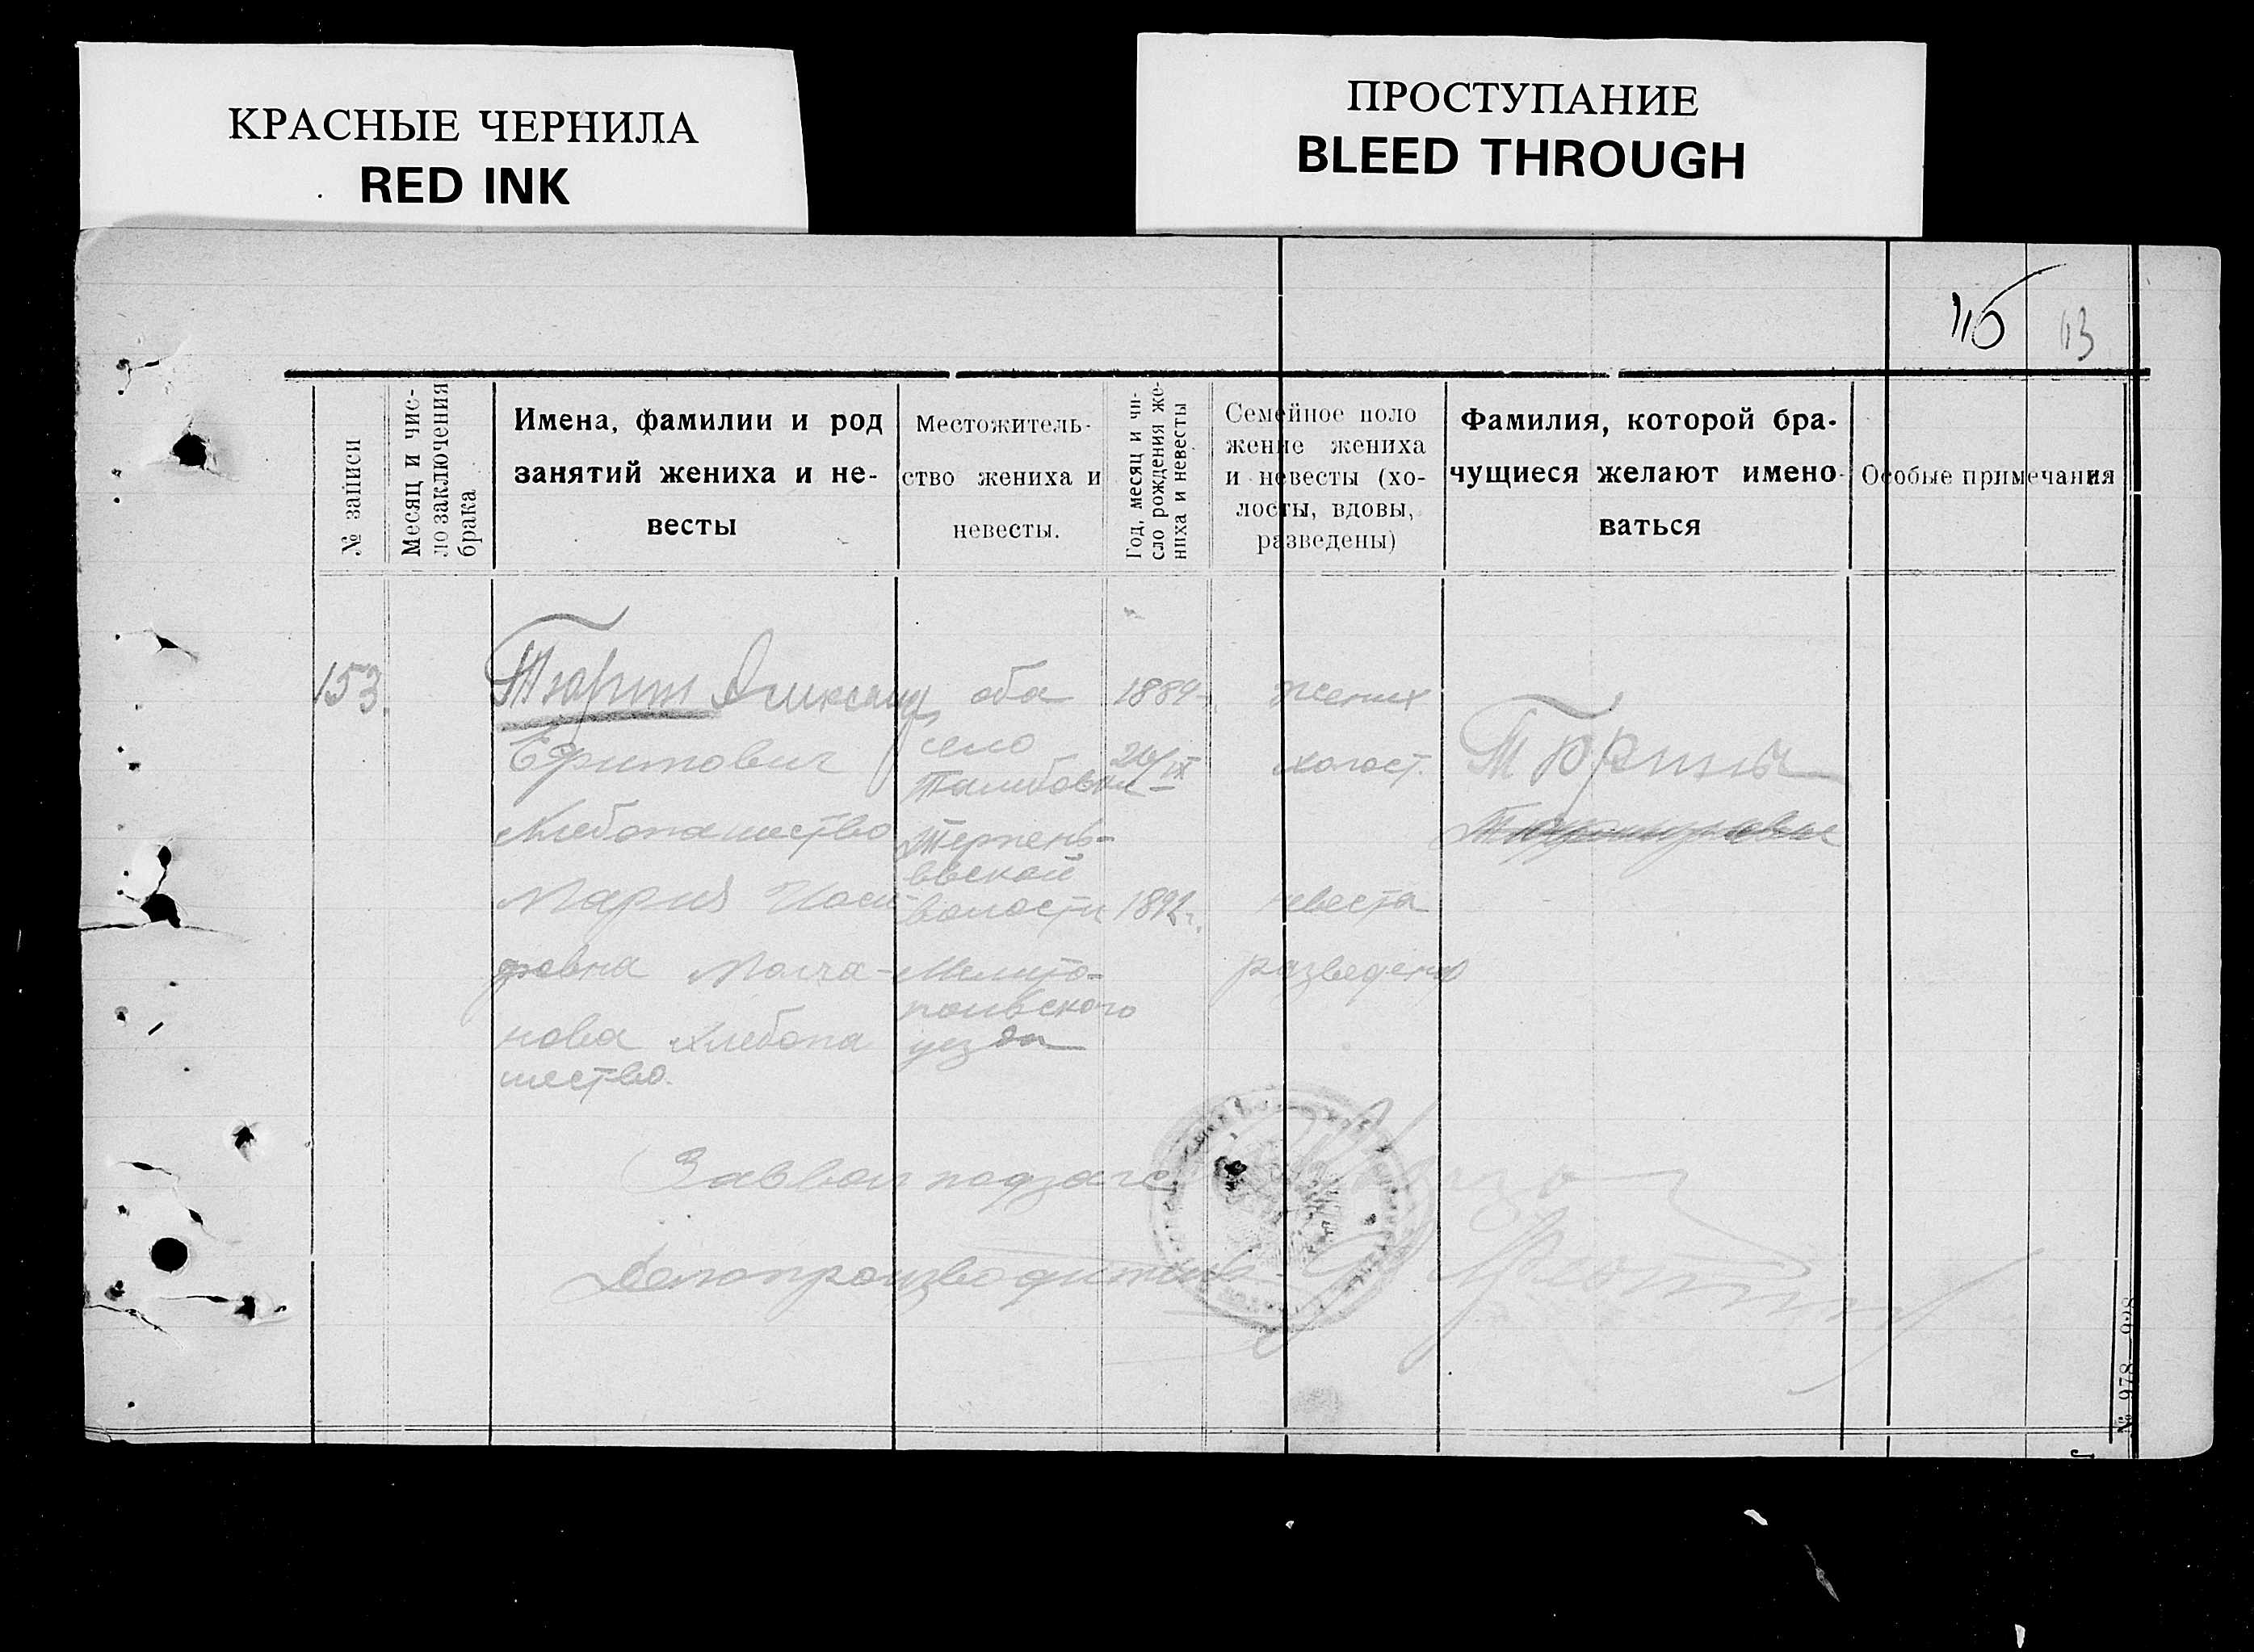 КРАСНЫЕ ЧЕРНИЛА
RED INK
ПРОСТУПАНИЕ
BLEED THROUGH
116 113
№ записи
Месяц и чис-
ло заключения
брака
Имена, фамилии и род
занятий жениха и не-
весты
Местожитель-
ство жениха и
невесты.
Год, месяц и чи-
сло рождения же-
ниха и невесты
Семейное поло
жение жениха
и невесты (хо-
лосты, вдовы,
разведены)
Фамилия, которой бра-
чущиеся желают имено-
ваться
Особые примечания
153.
Тюрин Александ
Ефимович
Хлебопашество
Мария Иоси-
фовна Молча-
нова Хлебопа
шество.
оба
село
Тамбовка
Терпень-
евской
волости
Мелито-
польского
уезда
1889
20/IX
1892г.
жених
холост.
невеста
разведена
Тюрины
Зав вол подзагс
Делопроизводитель
№ 978—928